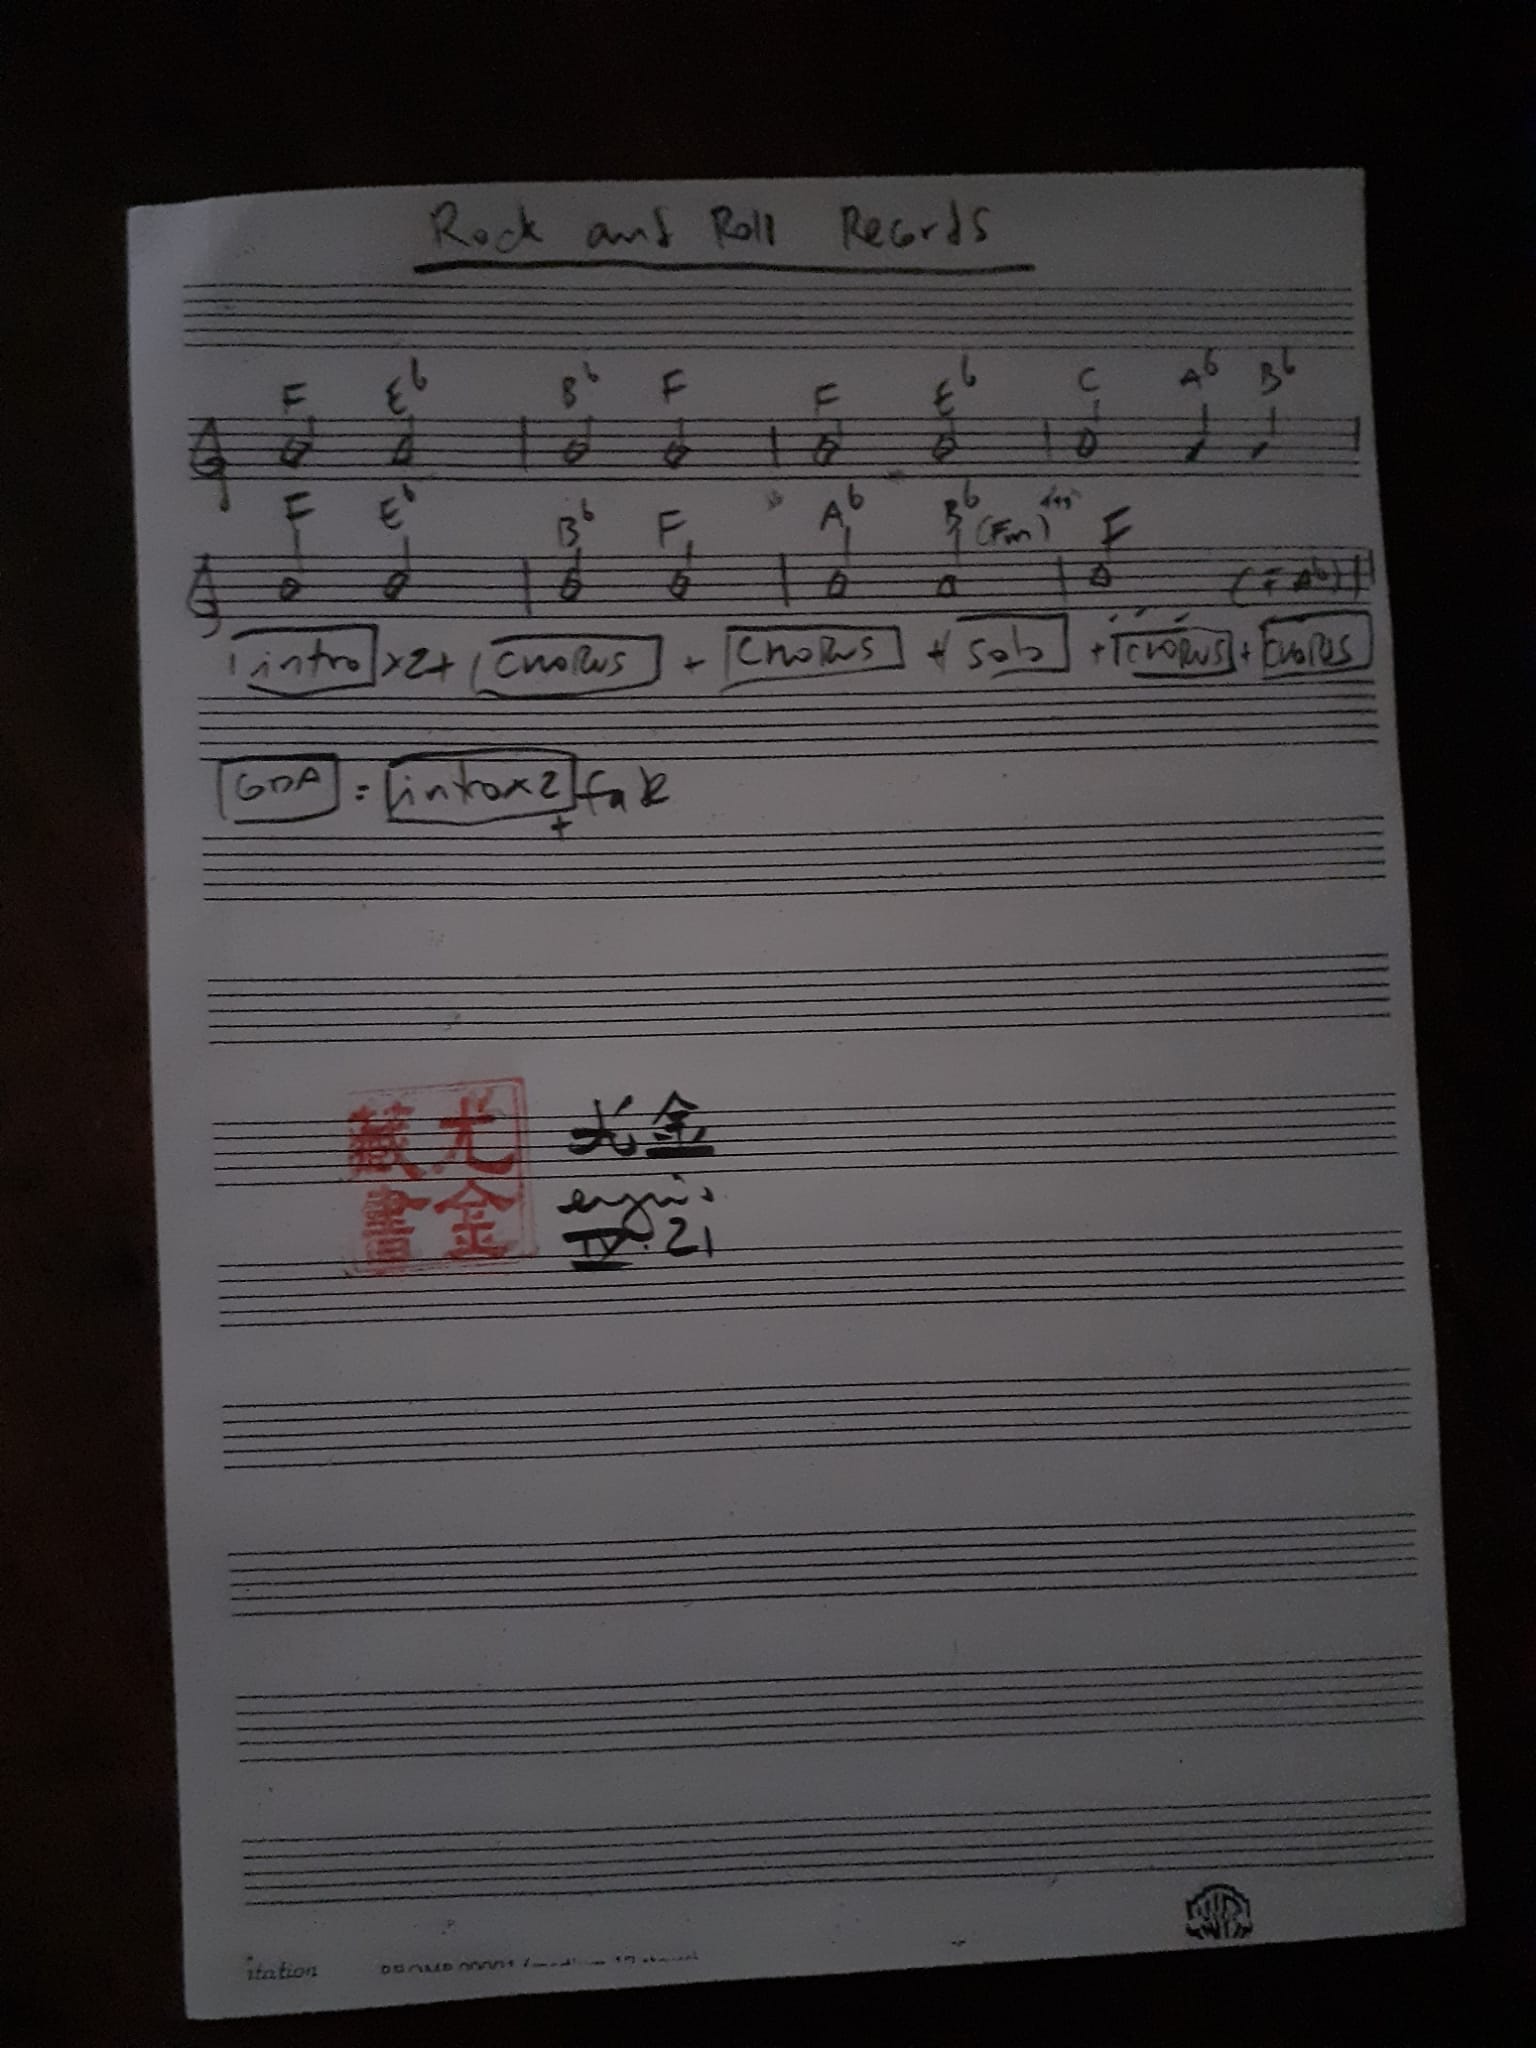 Rock and Roll Records
F Eb Bb F F Eb C Ab Bb
F Eb Bb F Ab Bb (Fm) F
intro x2 + CHORUS + CHORUS + Solo + CHORUS + CHORUS
CODA = intro x2 + fade
尤金
藏書
尤金
IV.21
itation